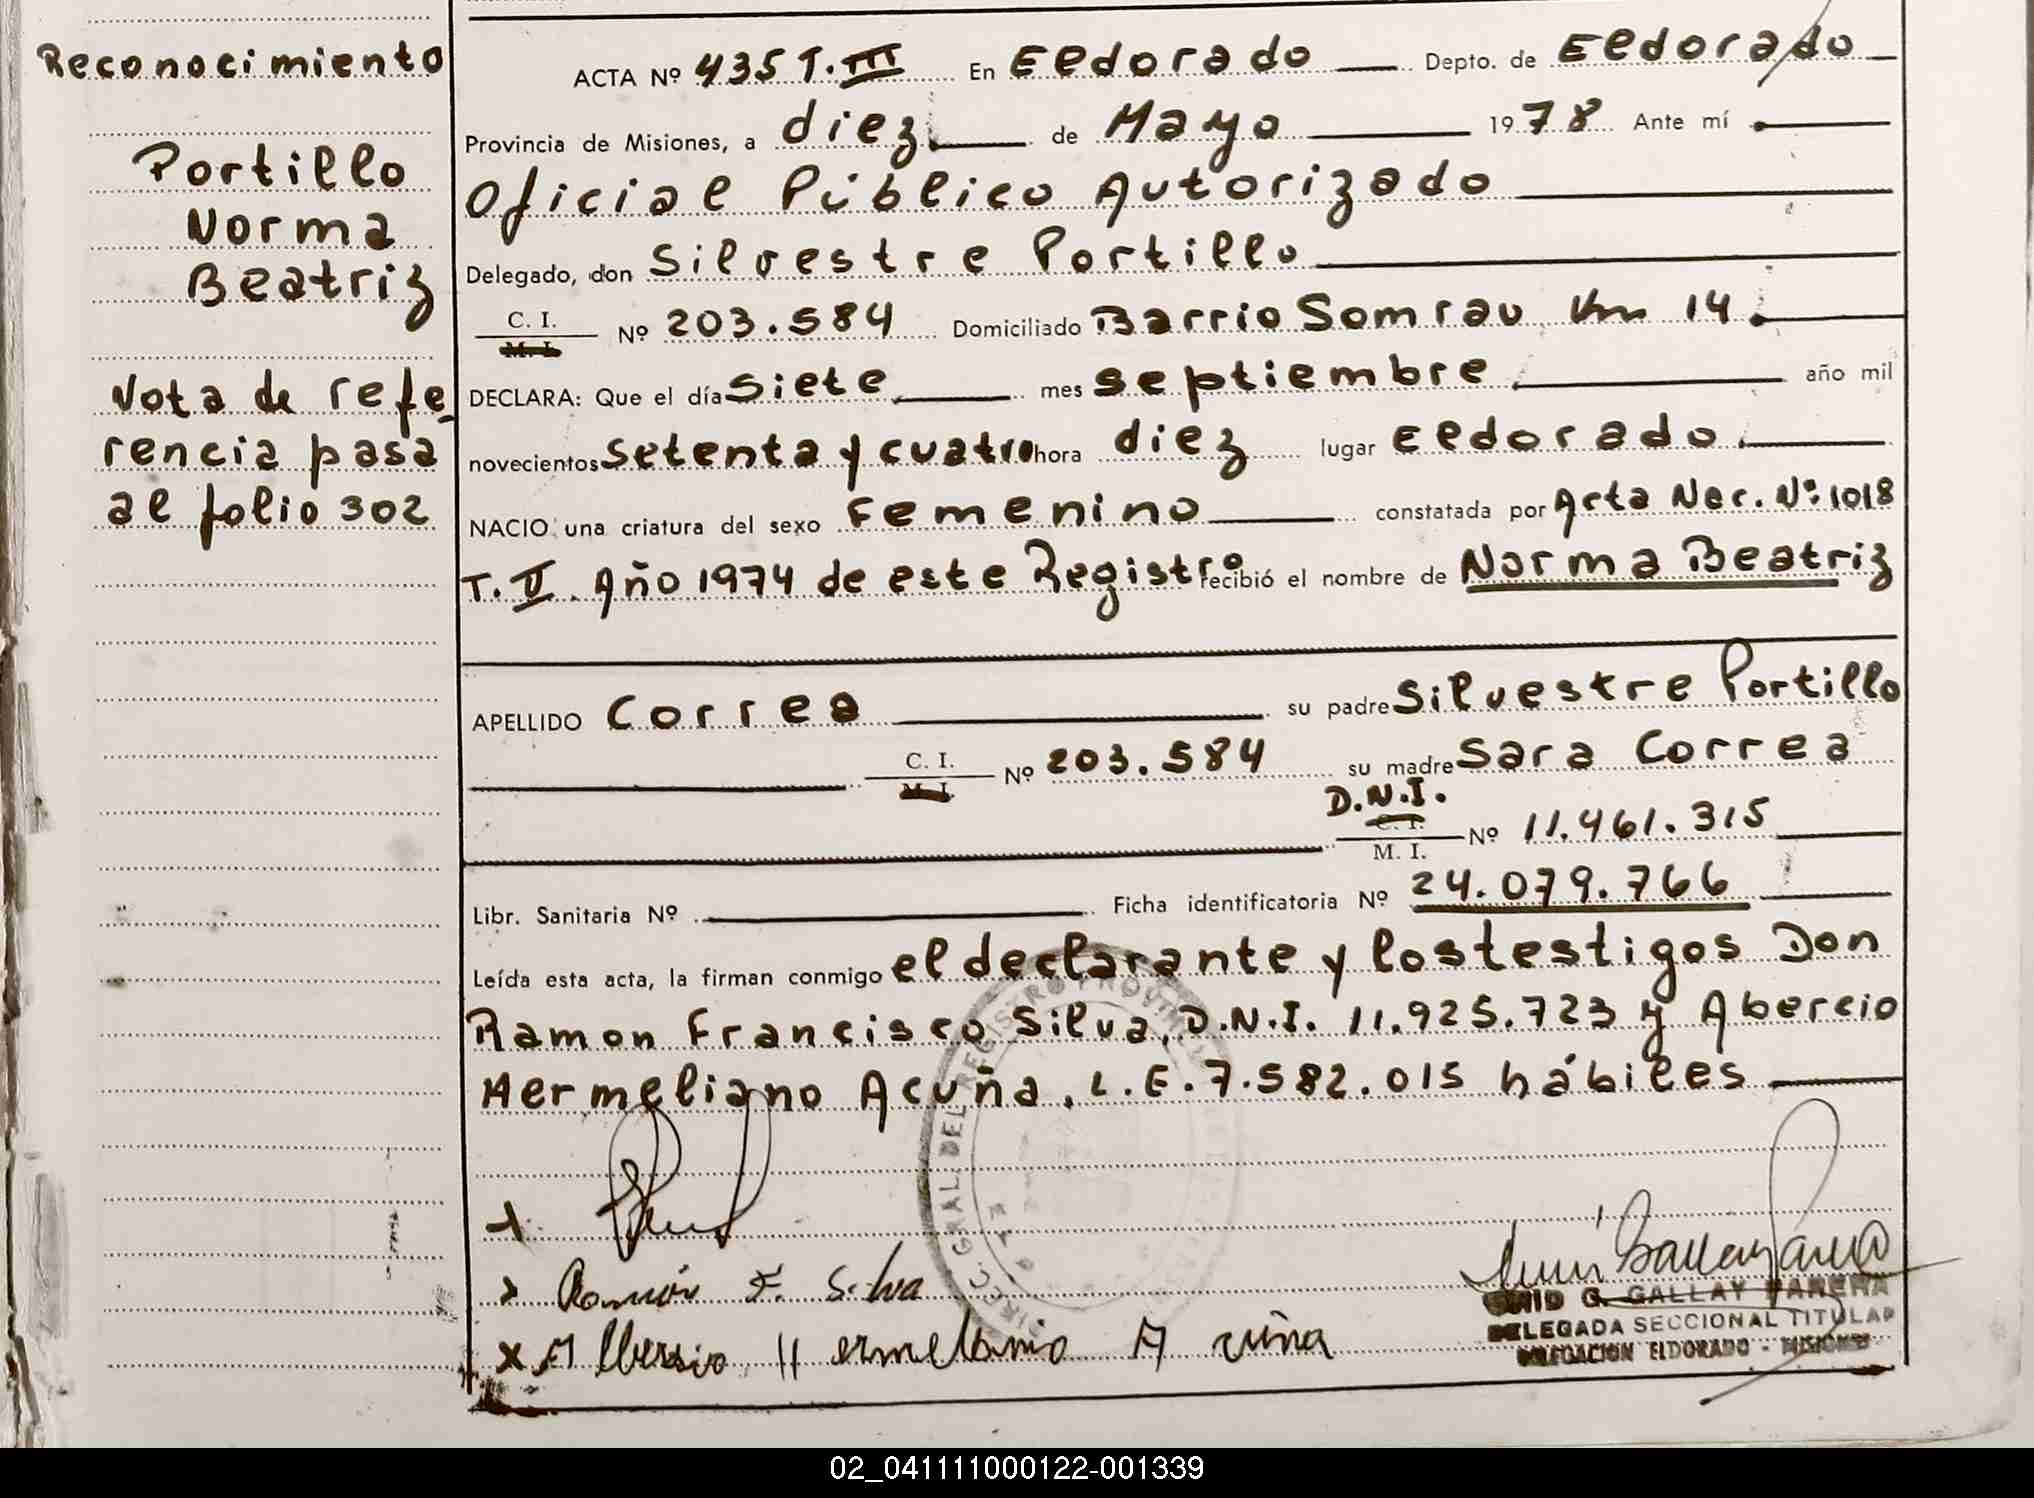 Reconocimiento
Portillo
Norma
Beatriz
Nota de refe
rencia pasa
al folio 302
ACTA Nº 435 T. III En Eldorado Depto. de Eldorado
Provincia de Misiones, a diez de Mayo 1978 Ante mí
Oficial Público Autorizado
Delegado, don Silvestre Portillo
C. I.
M. I.
Nº 203.584 Domiciliado Barrio Somrau Km 14
DECLARA: Que el día siete mes septiembre año mil
novecientos setenta y cuatro hora diez lugar Eldorado
NACIO una criatura del sexo femenino constatada por Acta Nac. Nº 1018
T. II. Año 1974 de este Registro recibió el nombre de Norma Beatriz
APELLIDO Correa su padre Silvestre Portillo
C. I.
M. I.
Nº 203.584 su madre Sara Correa
D.N.I.
C. I.
M. I.
Nº 11.461.315
Libr. Sanitaria Nº Ficha identificatoria Nº 24.079.766
Leída esta acta, la firman conmigo el declarante y los testigos Don
Ramon Francisco Silva, D.N.I. 11.925.723 y Abercio
Hermeliano Acuña, L.E. 7.582.015 hábiles
Ramón F. Silva
G. GALLAY PAREHA
DELEGADA SECCIONAL TITULAR
DELEGACION ELDORADO - MISIONES
GRAL. DEL REGISTRO PROVIN
02_041111000122-001339